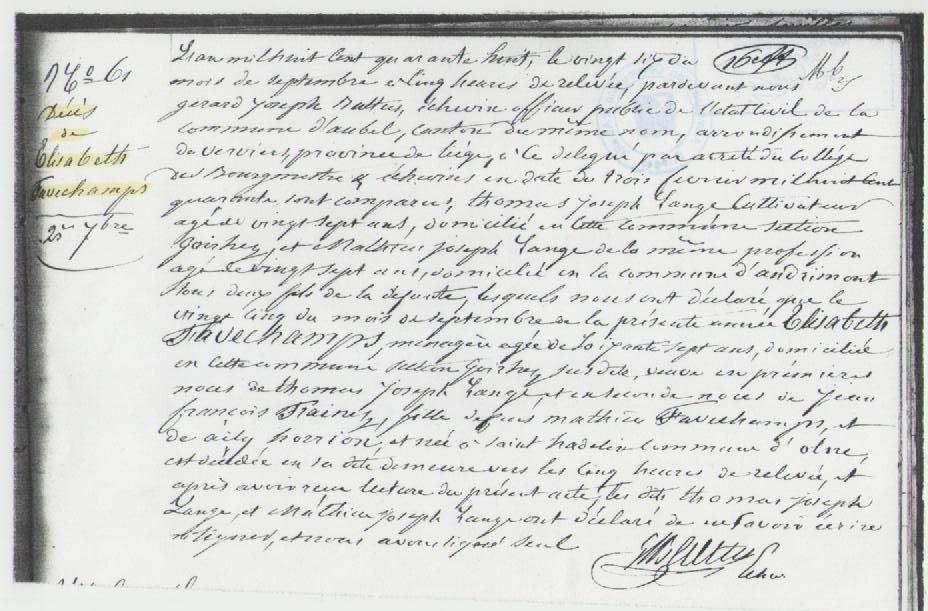 N.º 61
Décès
de
Elisabeth
Favechamps
25 7bre
L'an mil huit Cent quarante huit, le vingt six du
mois de septembre à Cinq heures de relevée, pardevant nous
gerard Joseph échevin officier public de l'état Civil de la
commune d'aubel, canton du même nom, arrondissement
de verviers, province de liége, à Ce delegué par arrêté du Collége
des Bourgmestre & échevins en date du trois fevrier mil huit Cent
quarante, sont comparus, thomas Joseph Lange Cultivateur
agé de vingt sept ans, domicilié en Cette Commune section
Gorhez, et Mathieu Joseph Lange de la même profession
agé de vingt sept ans, domicilié en la commune d'andrimont
tous deux fils de la défunte, lesquels nous ont déclaré que le
vingt Cinq du mois de septembre de la présente année Elisabeth
Favechamps, menagère agée de soixante sept ans, domiciliée
en Cette Commune section Gorhez, susdite, veuve en prémieres
noces de thomas Joseph Lange et en seconde noces de Jean
françois, fille de feus mathieu Favechamps, et
de horrion, et née à Saint hadelin Commune d'olne,
est décédée en sa dite demeure vers les Cinq heures de relevée, et
après avoir reçu lecture du présent acte, les dits thomas Joseph
Lange, et Mathieu Joseph Lange ont déclaré de ne savoir écrire
ni signer, et nous avons signé seul